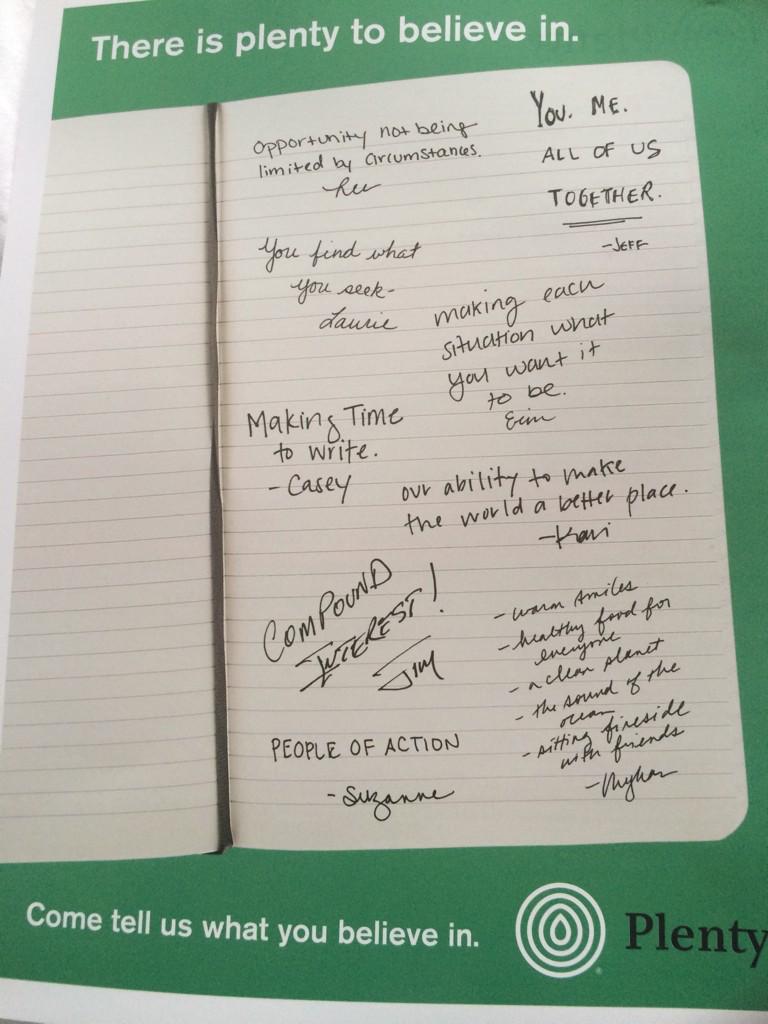 There is plenty to believe in.
Opportunity not being
limited by circumstances.
You. ME.
ALL OF US
TOGETHER.
-JEFF
You find what
you seek-
Laurie
making each
situation what
you want it
to be.
Erin
Making Time
to write.
- Casey
our ability to make
the world a better place.
-Kari
COMPOUND
INTEREST!
Jim
- warm smiles
- healthy food for
everyone
- a clean planet
- the sound of the
ocean
- sitting fireside
with friends
PEOPLE OF ACTION
- Suzanne
Come tell us what you believe in.
Plenty